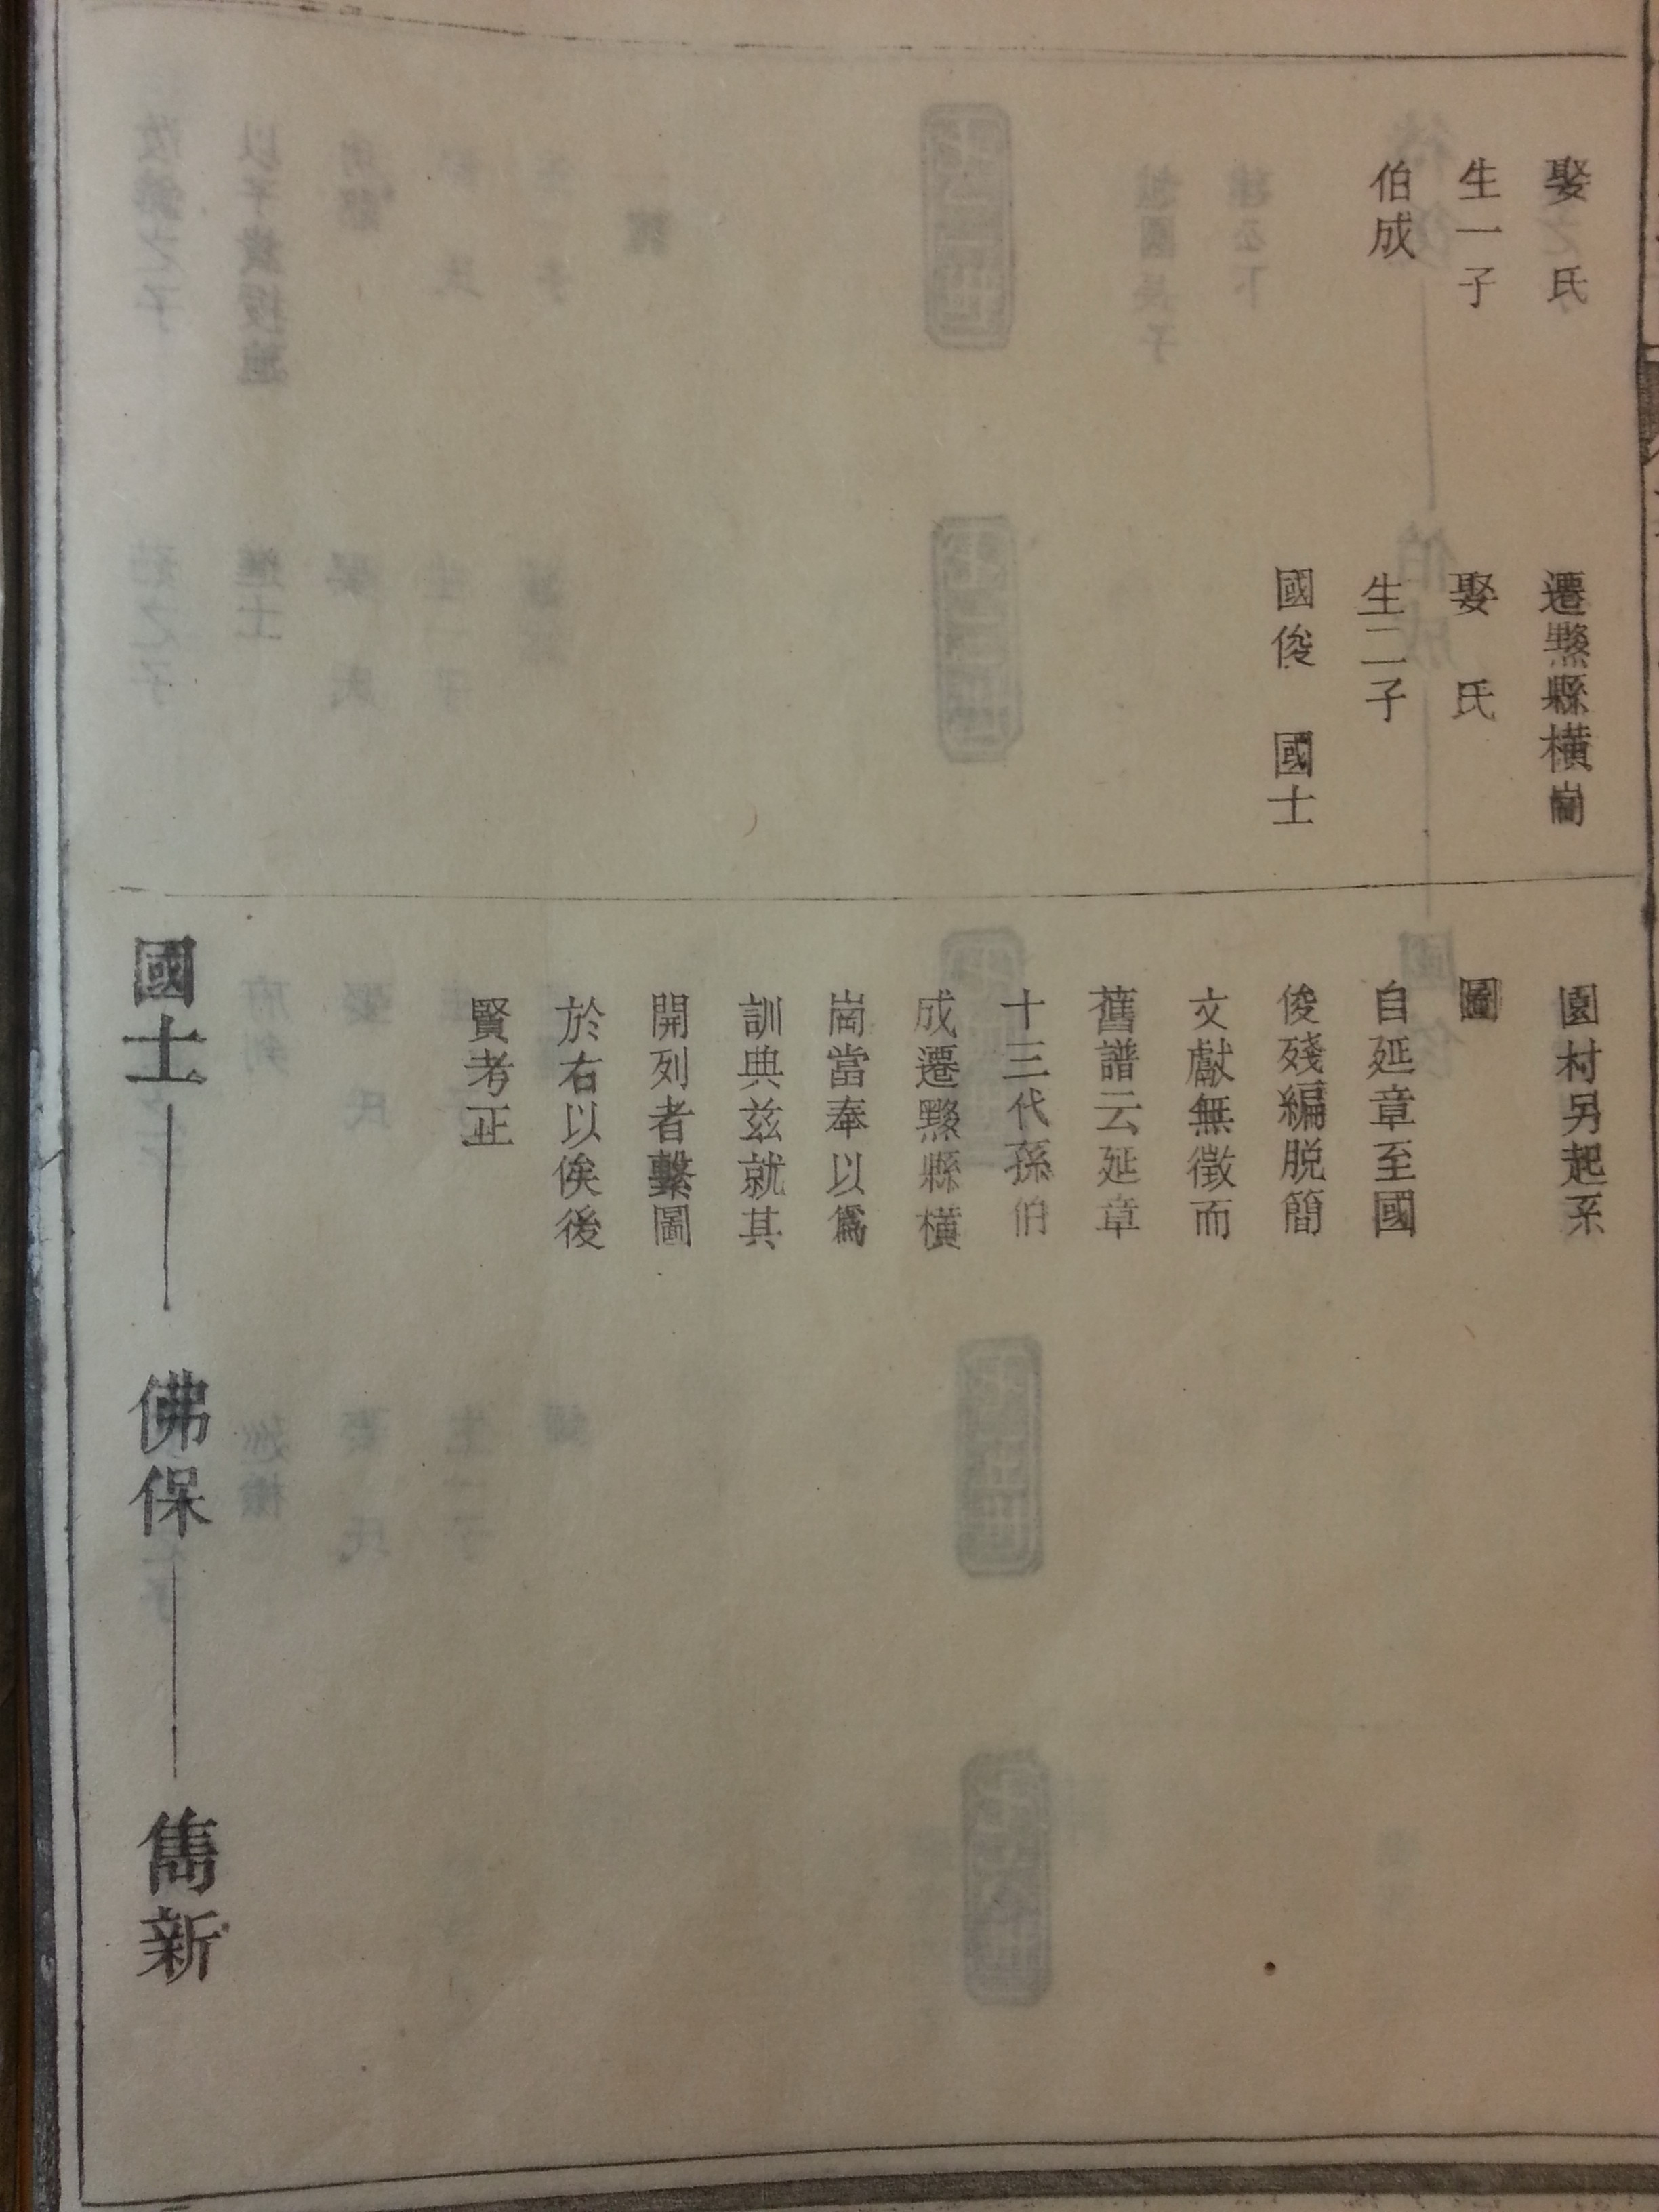 娶 氏
生一子
伯成
遷黟縣橫崗
娶 氏
生二子
國俊 國士
園村另起系
圖
自延章至國
俊殘編脱簡
文獻無徵而
舊譜云延章
十三代孫伯
成遷黟縣橫
崗當奉以爲
訓典兹就其
開列者繫圖
於右以俟後
賢考正
國士 佛保 雋新